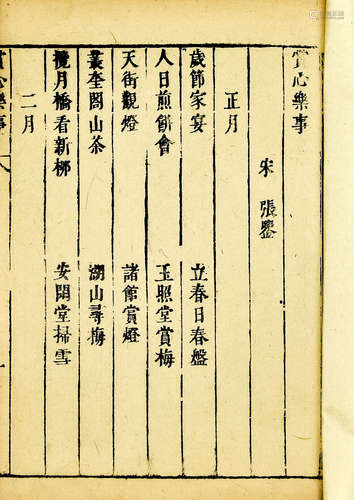 賞心樂事
宋 張鑒
正月
歲節家宴 立春日春盤
人日煎餅會 玉照堂賞梅
天街觀燈 諸館賞燈
叢奎閣山茶 湖山尋梅
攬月橋看新柳 安閑堂掃雪
二月
賞心樂事